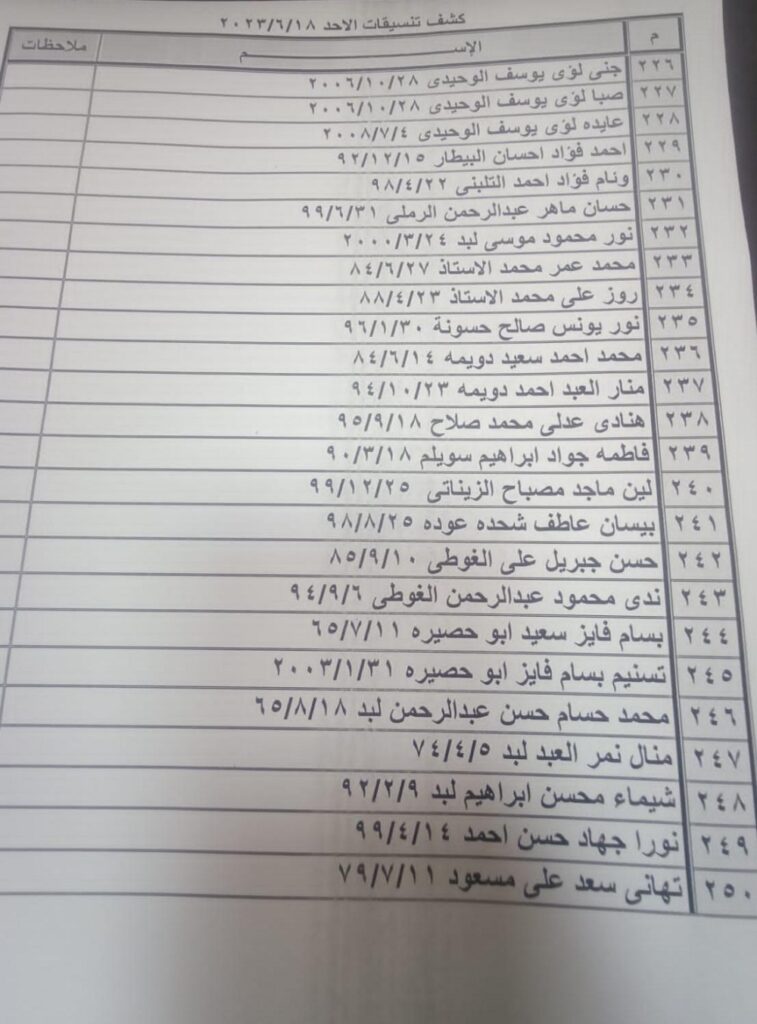 كشف تنسيقات الاحد ٢٠٢٣/٦/١٨
م الإســـــم ملاحظات
٢٢٦ جنى لؤى يوسف الوحيدى ٢٠٠٦/١٠/٢٨
٢٢٧ صبا لؤى يوسف الوحيدى ٢٠٠٦/١٠/٢٨
٢٢٨ عايده لؤى يوسف الوحيدى ٢٠٠٨/٧/٤
٢٢٩ احمد فؤاد احسان البيطار ٩٢/١٢/١٥
٢٣٠ ونام فؤاد احمد التلبنى ٩٨/٤/٢٢
٢٣١ حسان ماهر عبدالرحمن الرملى ٩٩/٦/٣١
٢٣٢ نور محمود موسى لبد ٢٠٠٠/٣/٢٤
٢٣٣ محمد عمر محمد الاستاذ ٨٤/٦/٢٧
٢٣٤ روز على محمد الاستاذ ٨٨/٤/٢٣
٢٣٥ نور يونس صالح حسونة ٩٦/١/٣٠
٢٣٦ محمد احمد سعيد دويمه ٨٤/٦/١٤
٢٣٧ منار العبد احمد دويمه ٩٤/١٠/٢٣
٢٣٨ هنادى عدلى محمد صلاح ٩٥/٩/١٨
٢٣٩ فاطمه جواد ابراهيم سويلم ٩٠/٣/١٨
٢٤٠ لين ماجد مصباح الزيناتى ٩٩/١٢/٢٥
٢٤١ بيسان عاطف شحده عوده ٩٨/٨/٢٥
٢٤٢ حسن جبريل على الغوطى ٨٥/٩/١٠
٢٤٣ ندى محمود عبدالرحمن الغوطى ٩٤/٩/٦
٢٤٤ بسام فايز سعيد ابو حصيره ٦٥/٧/١١
٢٤٥ تسنيم بسام فايز ابو حصيره ٢٠٠٣/١/٣١
٢٤٦ محمد حسام حسن عبدالرحمن لبد ٦٥/٨/١٨
٢٤٧ منال نمر العبد لبد ٧٤/٤/٥
٢٤٨ شيماء محسن ابراهيم لبد ٩٢/٢/٩
٢٤٩ نورا جهاد حسن احمد ٩٩/٤/١٤
٢٥٠ تهانى سعد على مسعود ٧٩/٧/١١